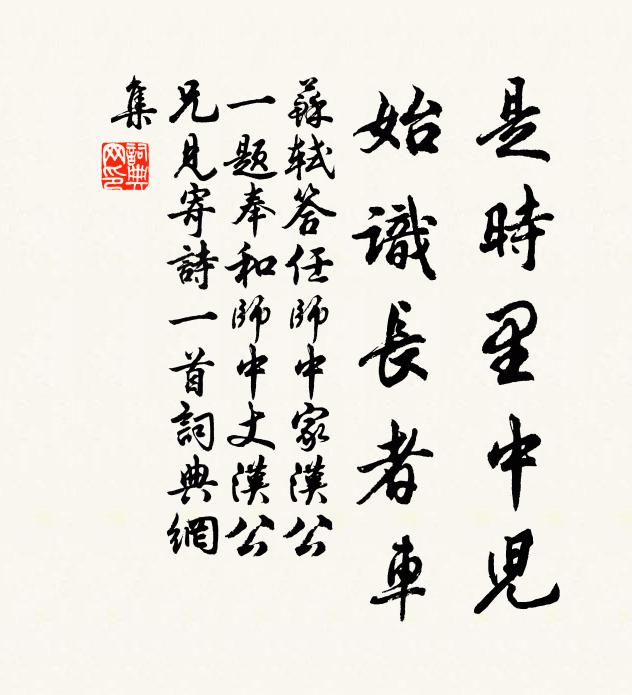 是時里中児
始識長者車
蘇軾答任師中家漢公
一題奉和師中丈漢公
兄見寄詩一首詞典網
集
詞典
网印